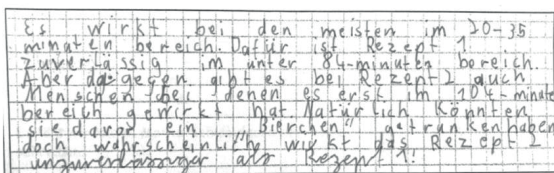 Es wirkt bei den meisten im 20-35
minuten bereich. Dafür ist Rezept 1
zuverlässig im unter 84-minuten bereich.
Aber dagegen gibt es bei Rezept 2 auch
Menschen bei denen es erst im 104-minute
bereich gewirkt hat. Natürlich könnten
sie davor ein "Bierchen" getrunken haben
doch wahrscheinlich wirkt das Rezept 2
unzuverlässiger als Rezept 1!